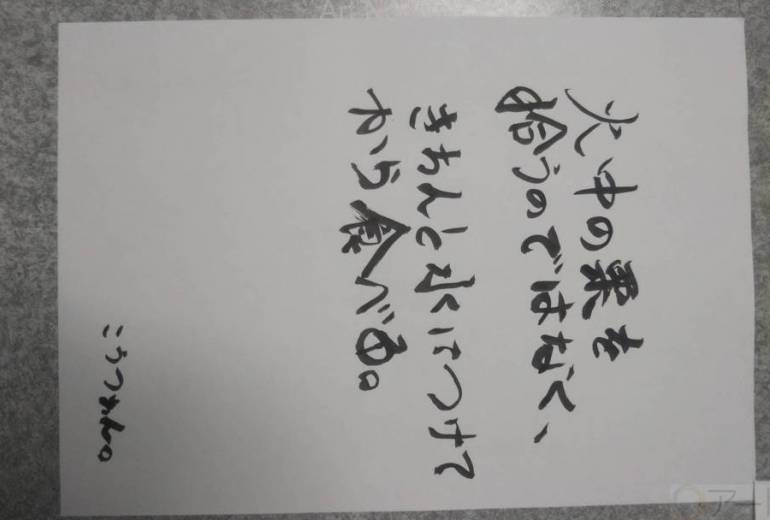 火中の栗を
拾うのではなく、
きちんと水につけて
から食べる。
こうつわん。